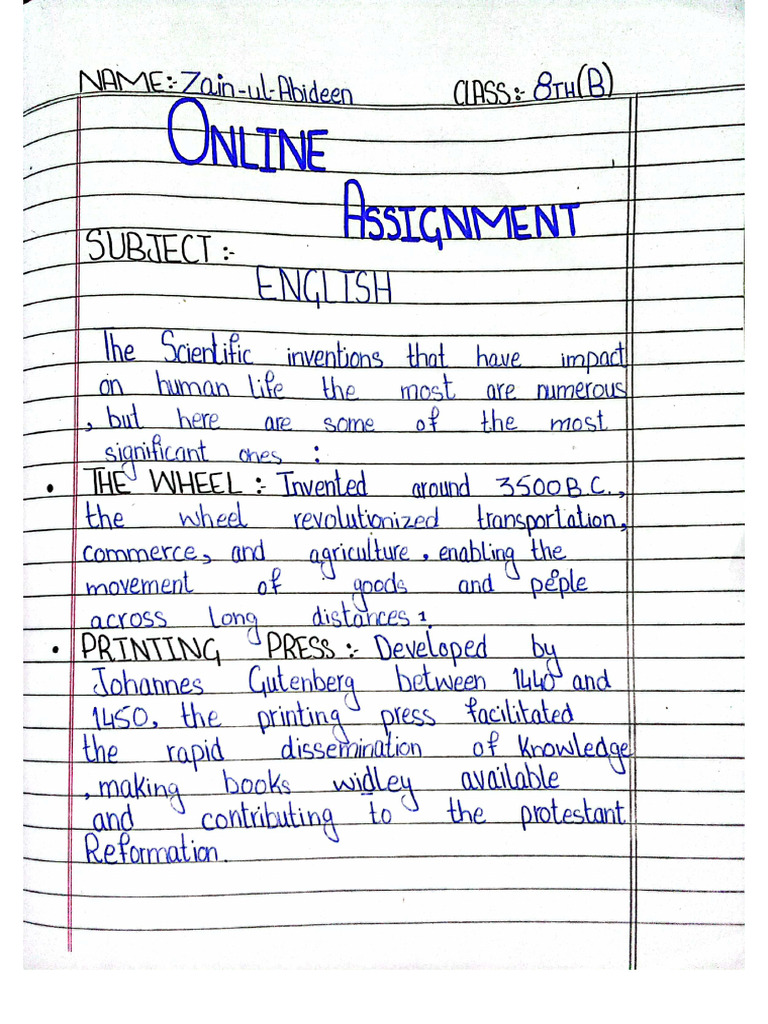 NAME:- Zain-ul-Abideen CLASS:- 8TH(B)
ONLINE
ASSIGNMENT
SUBJECT:-
ENGLISH
The Scientific inventions that have impact
on human life the most are numerous
, but here are some of the most
significant ones :
• THE WHEEL:- Invented around 3500 B.C.,
the wheel revolutionized transportation,
commerce, and agriculture, enabling the
movement of goods and peple
across long distances 1.
• PRINTING PRESS:- Developed by
Johannes Gutenberg between 1440 and
1450, the printing press facilitated
the rapid dissemination of Knowledge
, making books widley available
and contributing to the protestant
Reformation.